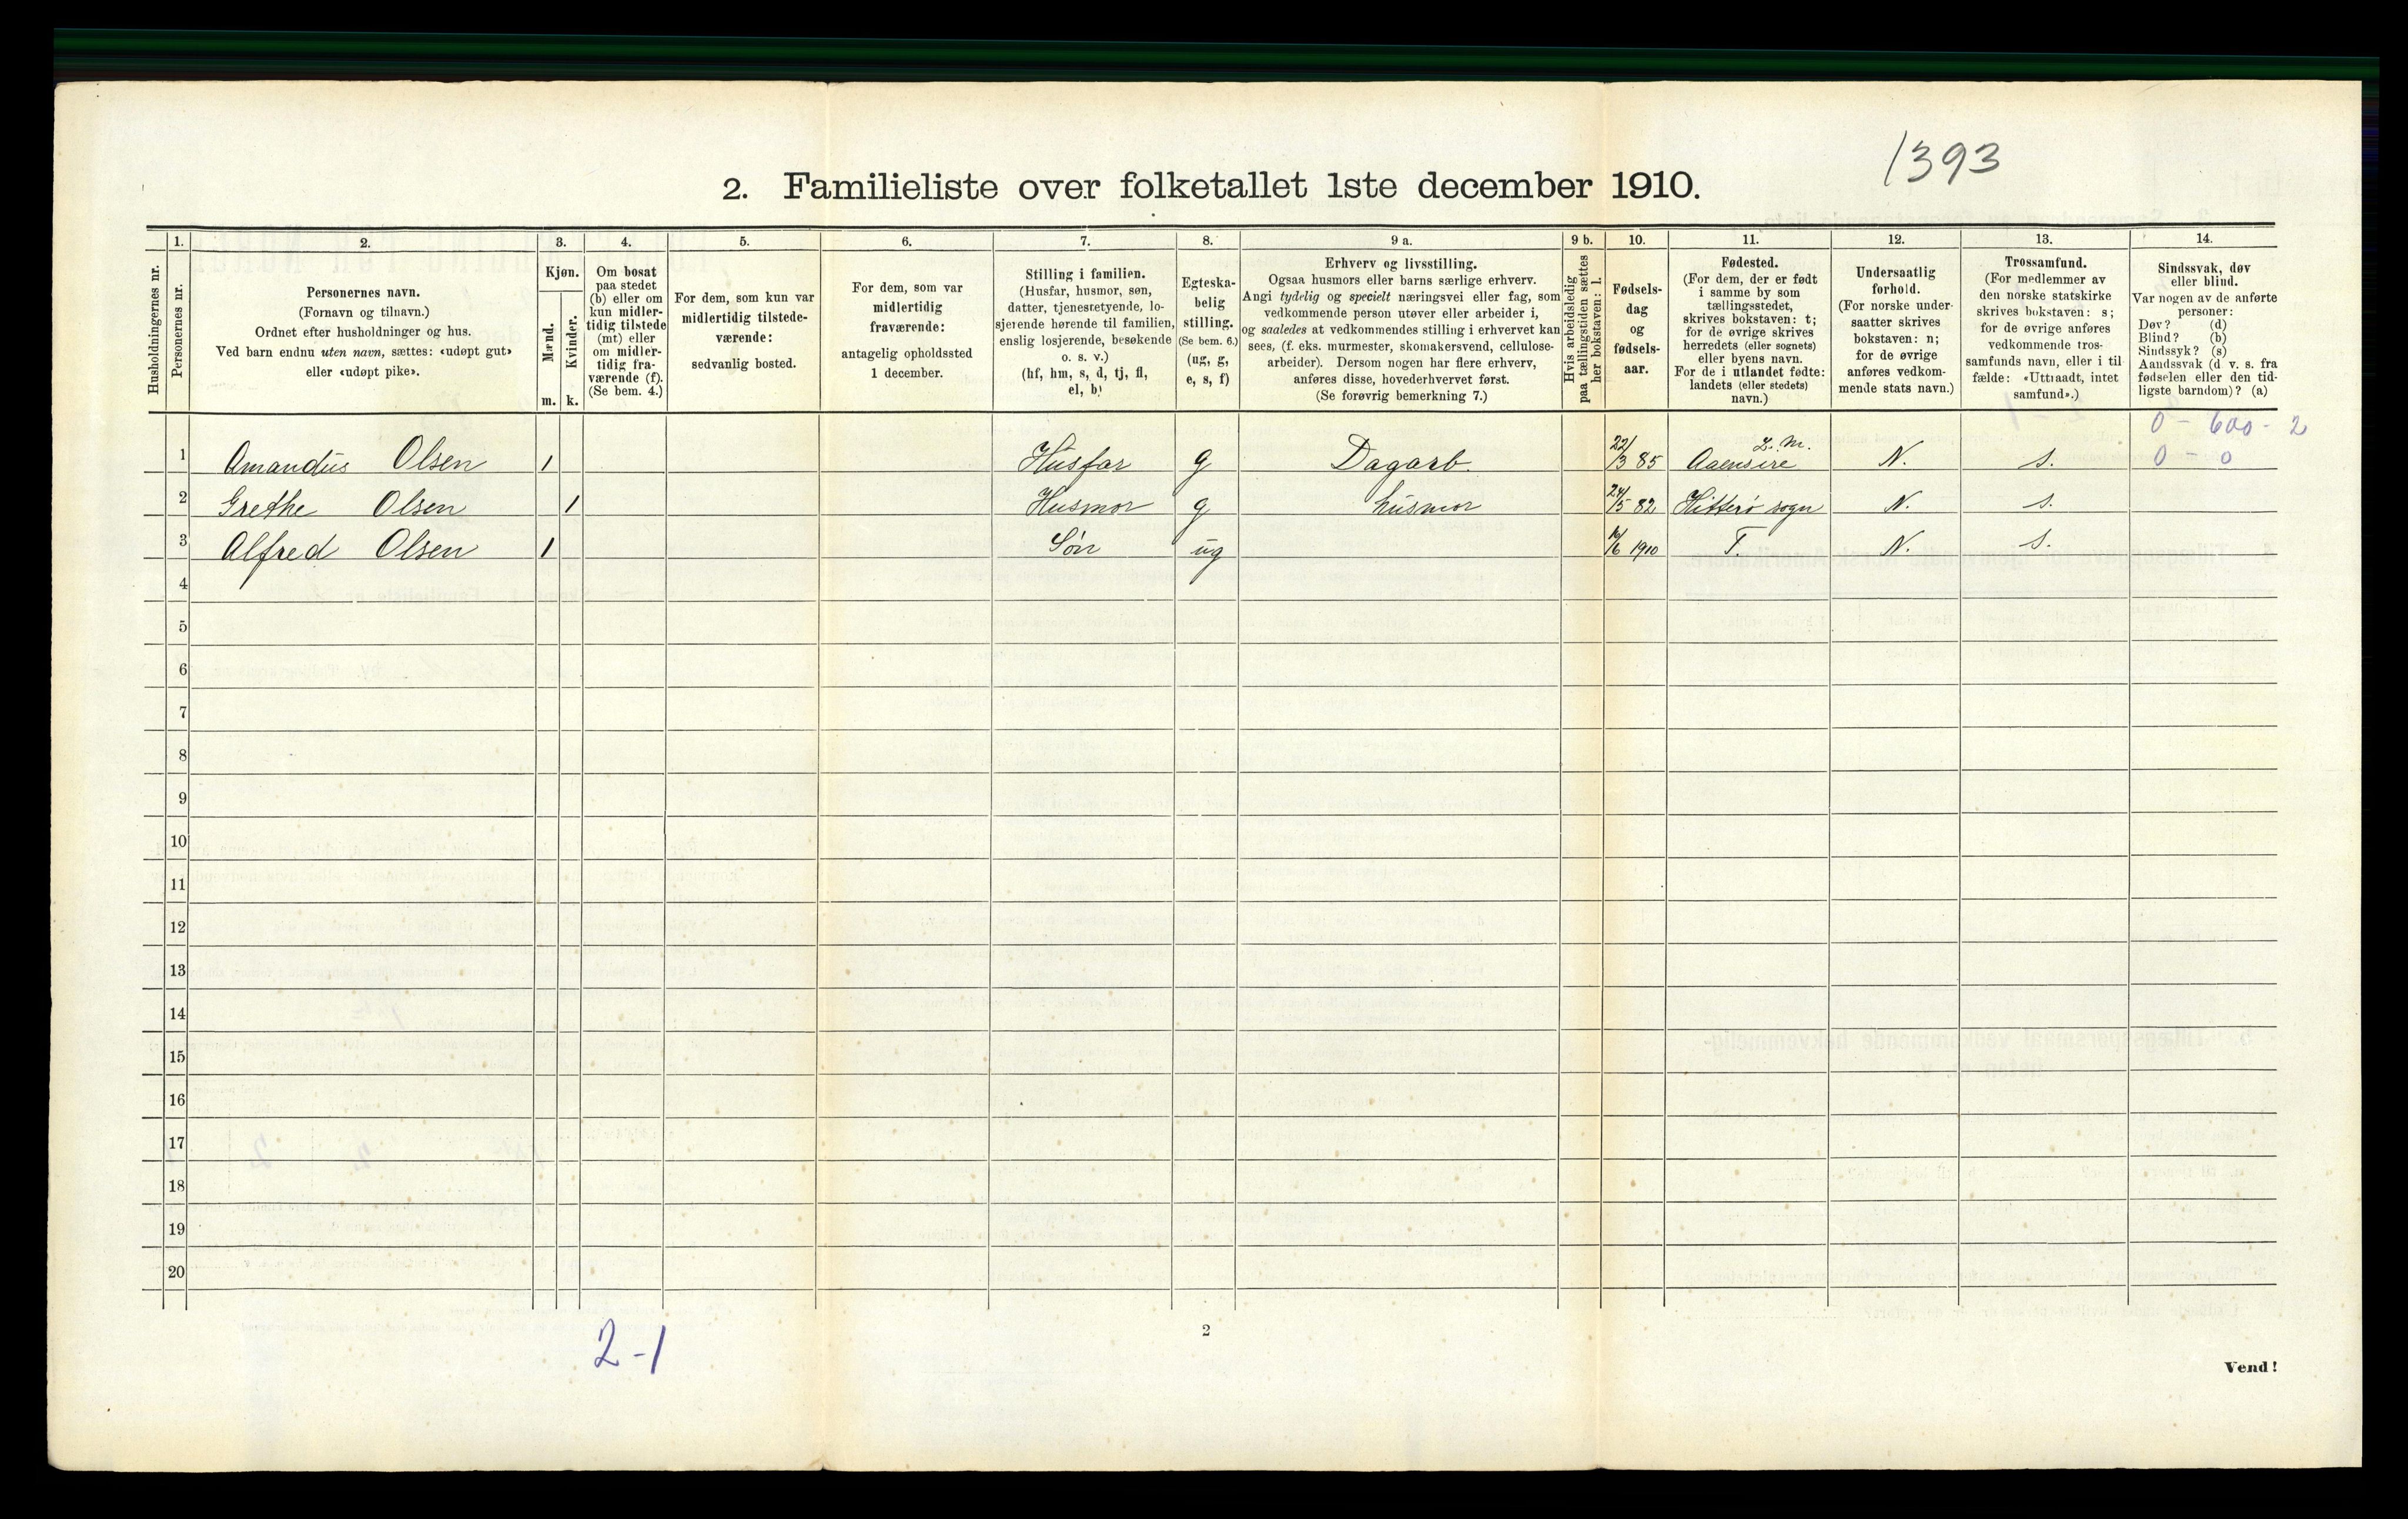 1393
2. Familieliste over folketallet 1ste december 1910.
Husholdningernes nr.
1. Personernes nr.
2. Personernes navn.
(Fornavn og tilnavn.)
Ordnet efter husholdninger og hus.
Ved barn endnu uten navn, sættes: «udøpt gut»
eller «udøpt pike».
3. Kjøn.
Mænd. m.
Kvinder. k.
4. Om bosat
paa stedet
(b) eller om
kun midler-
tidig tilstede
(mt) eller
om midler-
tidig fra-
værende (f).
(Se bem. 4.)
5. For dem, som kun var
midlertidig tilstede-
værende:
sedvanlig bosted.
6. For dem, som var
midlertidig
fraværende:
antagelig opholdssted
1 december.
7. Stilling i familien.
(Husfar, husmor, søn,
datter, tjenestetyende, lo-
sjerende hørende til familien,
enslig losjerende, besøkende
o. s. v.)
(hf, hm, s, d, tj, fl,
el, b)
8. Egteska-
belig
stilling.
(Se bem. 6.)
(ug, g,
e, s, f)
9 a. Erhverv og livsstilling.
Ogsaa husmors eller barns særlige erhverv.
Angi tydelig og specielt næringsvei eller fag, som
vedkommende person utøver eller arbeider i,
og saaledes at vedkommendes stilling i erhvervet kan
sees, (f. eks. murmester, skomakersvend, cellulose-
arbeider). Dersom nogen har flere erhverv,
anføres disse, hovederhvervet først.
(Se forøvrig bemerkning 7.)
9 b. Hvis arbeidsledig
paa tællingstiden sættes
her bokstaven: l.
10. Fødsels-
dag
og
fødsels-
aar.
11. Fødested.
(For dem, der er født
i samme by som
tællingsstedet,
skrives bokstaven: t;
for de øvrige skrives
herredets (eller sognets)
eller byens navn.
For de i utlandet fødte:
landets (eller stedets)
navn.)
12. Undersaatlig
forhold.
(For norske under-
saatter skrives
bokstaven: n;
for de øvrige
anføres vedkom-
mende stats navn.)
13. Trossamfund.
(For medlemmer av
den norske statskirke
skrives bokstaven: s;
for de øvrige anføres
vedkommende tros-
samfunds navn, eller i til-
fælde: «Uttraadt, intet
samfund».)
14. Sindssvak, døv
eller blind.
Var nogen av de anførte
personer:
Døv? (d)
Blind? (b)
Sindssyk? (s)
Aandssvak (d v. s. fra
fødselen eller den tid-
ligste barndom)? (a)
0 - 600 - 2
L. M.
1 Amandus Olsen 1 Husfar g Dagarb. 22/3 85 Aaensire N. s. 0 - 0
2 Grethe Olsen 1 Husmor g husmor 24/5 82 Hitterø sogn N. s.
3 Alfred Olsen 1 Søn ug /6 1910 T. N. s.
4
5
6
7
8
9
10
11
12
13
14
15
16
17
18
19
20
2-1
2
Vend!